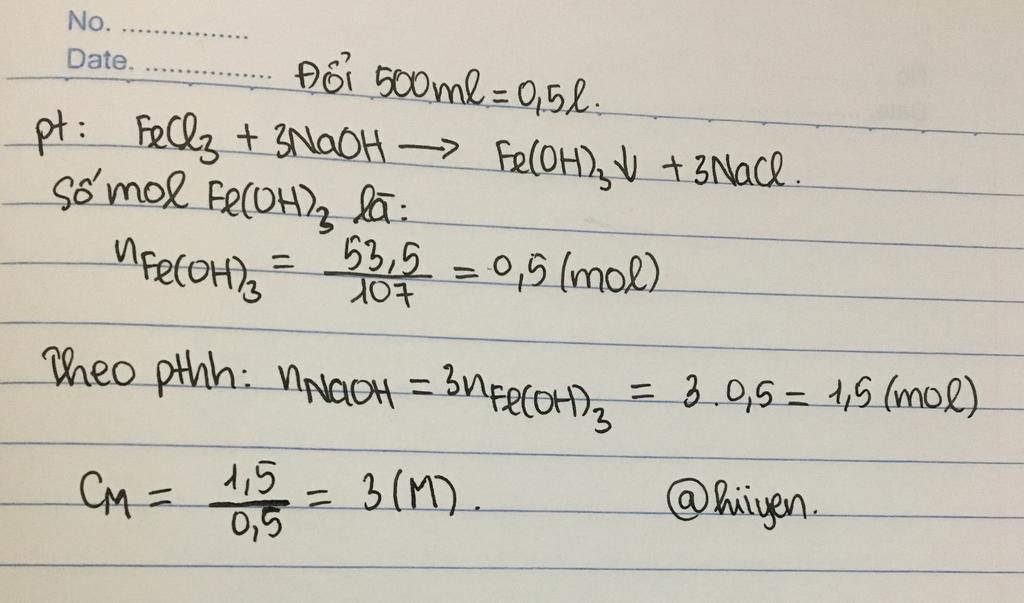 No. ..................
Date. ..................
Đổi 500ml = 0,5l.
pt: FeCl₃ + 3NaOH → Fe(OH)₃↓ + 3NaCl.
Số mol Fe(OH)₃ là:
nFe(OH)₃ = 53,5/107 = 0,5 (mol)
Theo pthh: nNaOH = 3nFe(OH)₃ = 3 . 0,5 = 1,5 (mol)
CM = 1,5/0,5 = 3 (M).
@hiiyen.